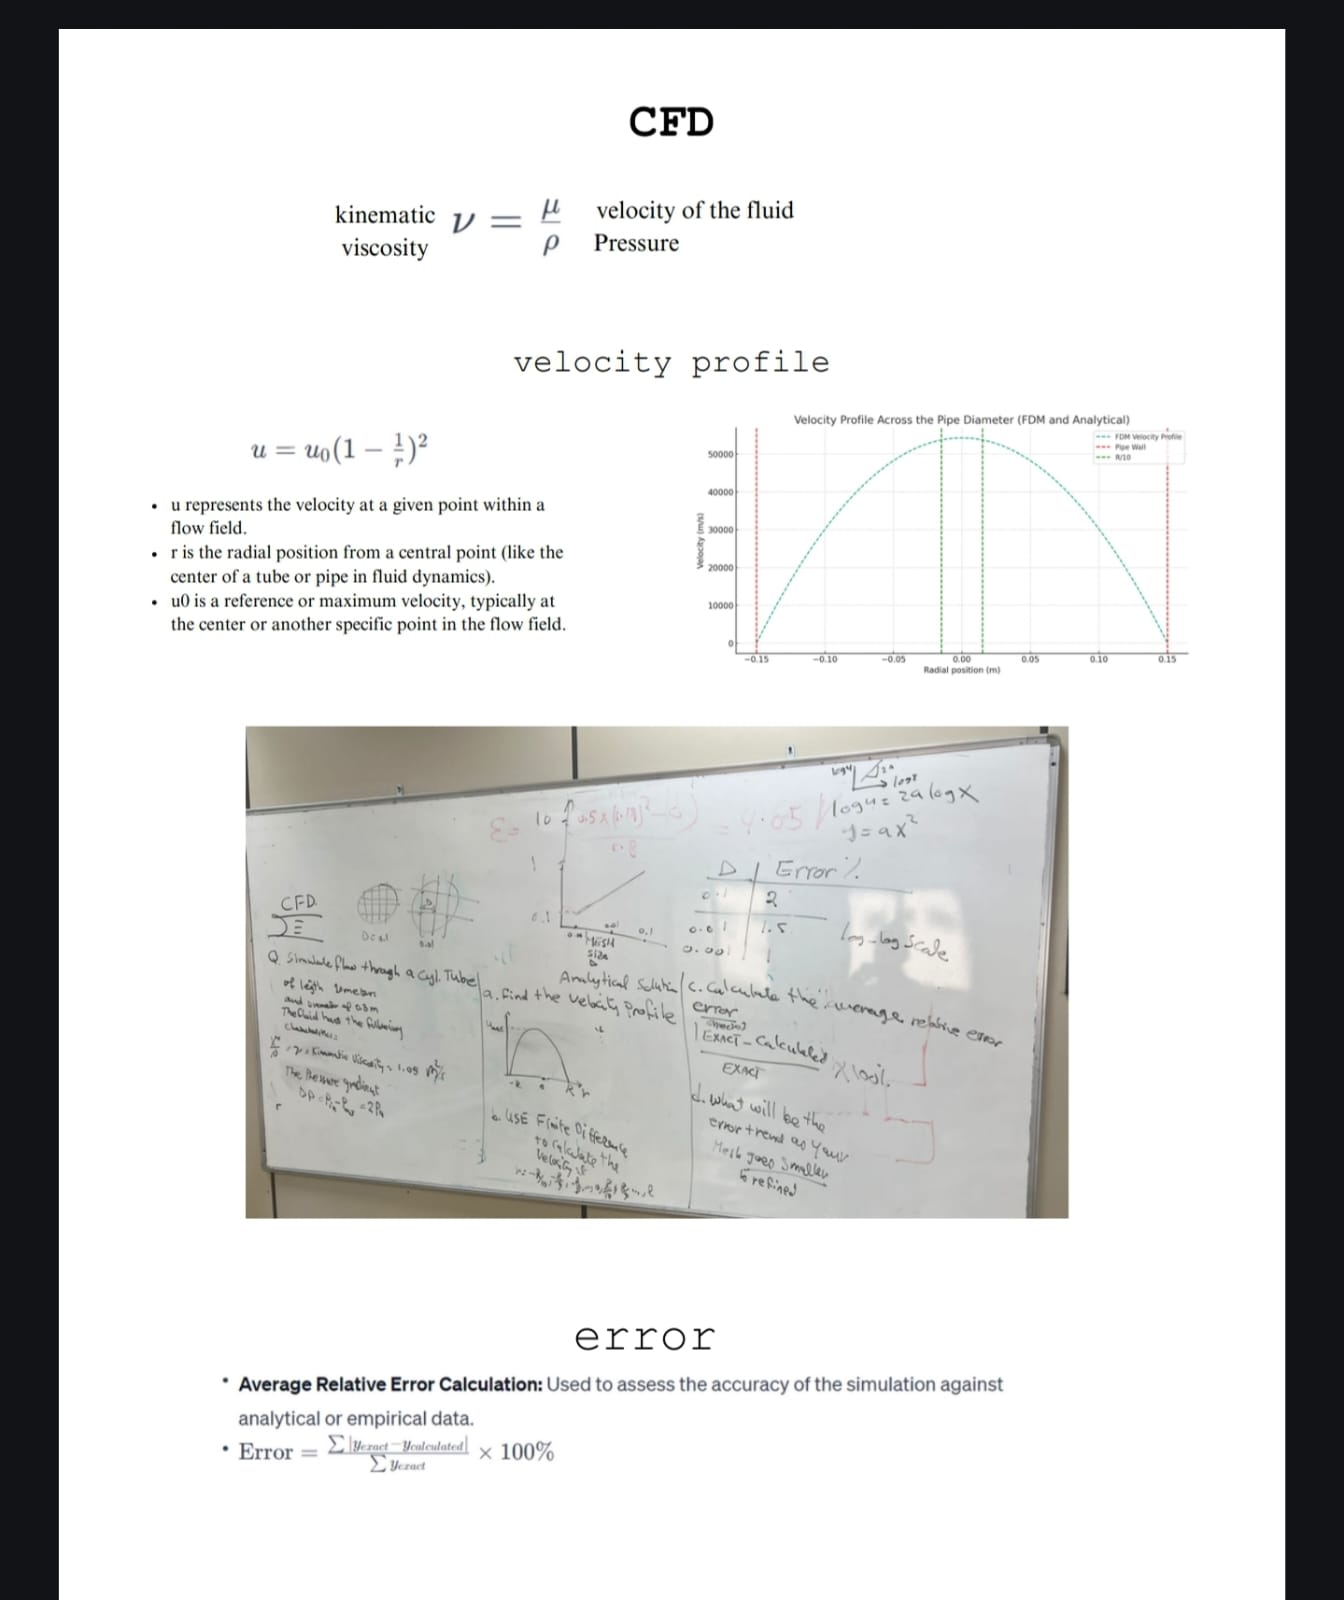 CFD
kinematic
viscosity
ν = μ/ρ
velocity of the fluid
Pressure
velocity profile
u = u₀(1 − 1/r)²
• u represents the velocity at a given point within a
flow field.
• r is the radial position from a central point (like the
center of a tube or pipe in fluid dynamics).
• u0 is a reference or maximum velocity, typically at
the center or another specific point in the flow field.
Velocity Profile Across the Pipe Diameter (FDM and Analytical)
FDM Velocity Profile
Pipe Wall
R/10
Velocity (m/s)
50000
40000
30000
20000
10000
0
−0.15 −0.10 −0.05 0.00 0.05 0.10 0.15
Radial position (m)
log x
log y = 2a log x
y = ax²
= 4.05
10
1
0.1
0.1
MESH
size
D
D | Error %
0.1 | 2
0.01 | 1.5
0.001 | 1
log-log scale
CFD
Q. Simulate flow through a Cyl. Tube
of length
and
The fluid has the following
= Kinematic Viscosity = 1.09 m²/s
The Pressure gradient
Analytical Solution
a. find the velocity profile
b. USE Finite Difference
to calculate the
velocity
c. Calculate the average relative error
error
| EXACT - Calculated
EXACT
X 100%
d. What will be the
error trend as your
Mesh goes smaller
& refined
error
• Average Relative Error Calculation: Used to assess the accuracy of the simulation against
analytical or empirical data.
• Error = ∑|yexact − ycalculated| / ∑ yexact × 100%